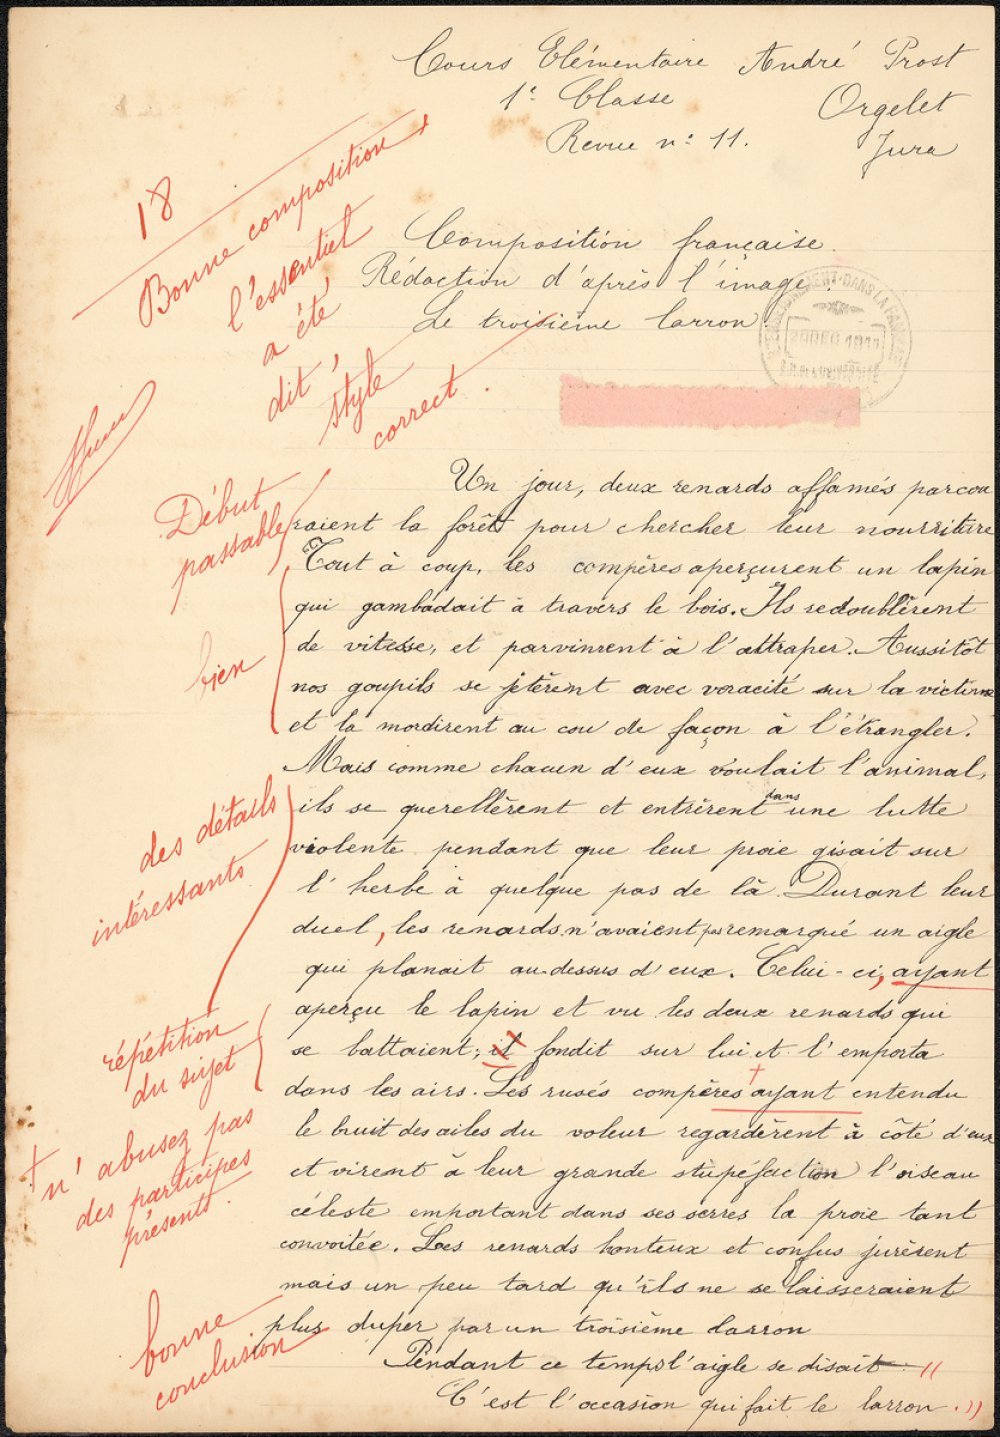 Cours Elémentaire André Prost
1e Classe Orgelet
Revue n: 11. Jura
18
Bonne composition
l'essentiel
a été
dit,
style
correct.
Composition française.
Rédaction d'après l'image.
Le troisième larron.
20 DEC 1911
Début
passable
bien
des détails
intéressants
répétition
du sujet
+ n'abusez pas
des participes
présents.
bonne
conclusion
Un jour, deux renards affamés parcou
raient la forêt pour chercher leur nourriture
Tout à coup, les compères aperçurent un lapin
qui gambadait à travers le bois. Ils redoublèrent
de vitesse, et parvinrent à l'attraper. Aussitôt
nos goupils se jetèrent avec voracité sur la victime
et la mordirent au cou de façon à l'étrangler.
Mais comme chacun d'eux voulait l'animal,
ils se querellèrent et entrèrent dans une lutte
violente pendant que leur proie gisait sur
l'herbe à quelque pas de là. Durant leur
duel, les renards n'avaient pas remarqué un aigle
qui planait au-dessus d'eux. Celui-ci, ayant
aperçu le lapin et vu les deux renards qui
se battaient; il fondit sur lui et l'emporta
dans les airs. Les rusés compères + ayant entendu
le bruit des ailes du voleur regardèrent à côté d'eux
et virent à leur grande stupéfaction l'oiseau
céleste emportant dans ses serres la proie tant
convoitée. Les renards honteux et confus jurèrent
mais un peu tard qu'ils ne se laisseraient
plus duper par un troisième larron
Pendant ce temps l'aigle se disait "
C'est l'occasion qui fait le larron."